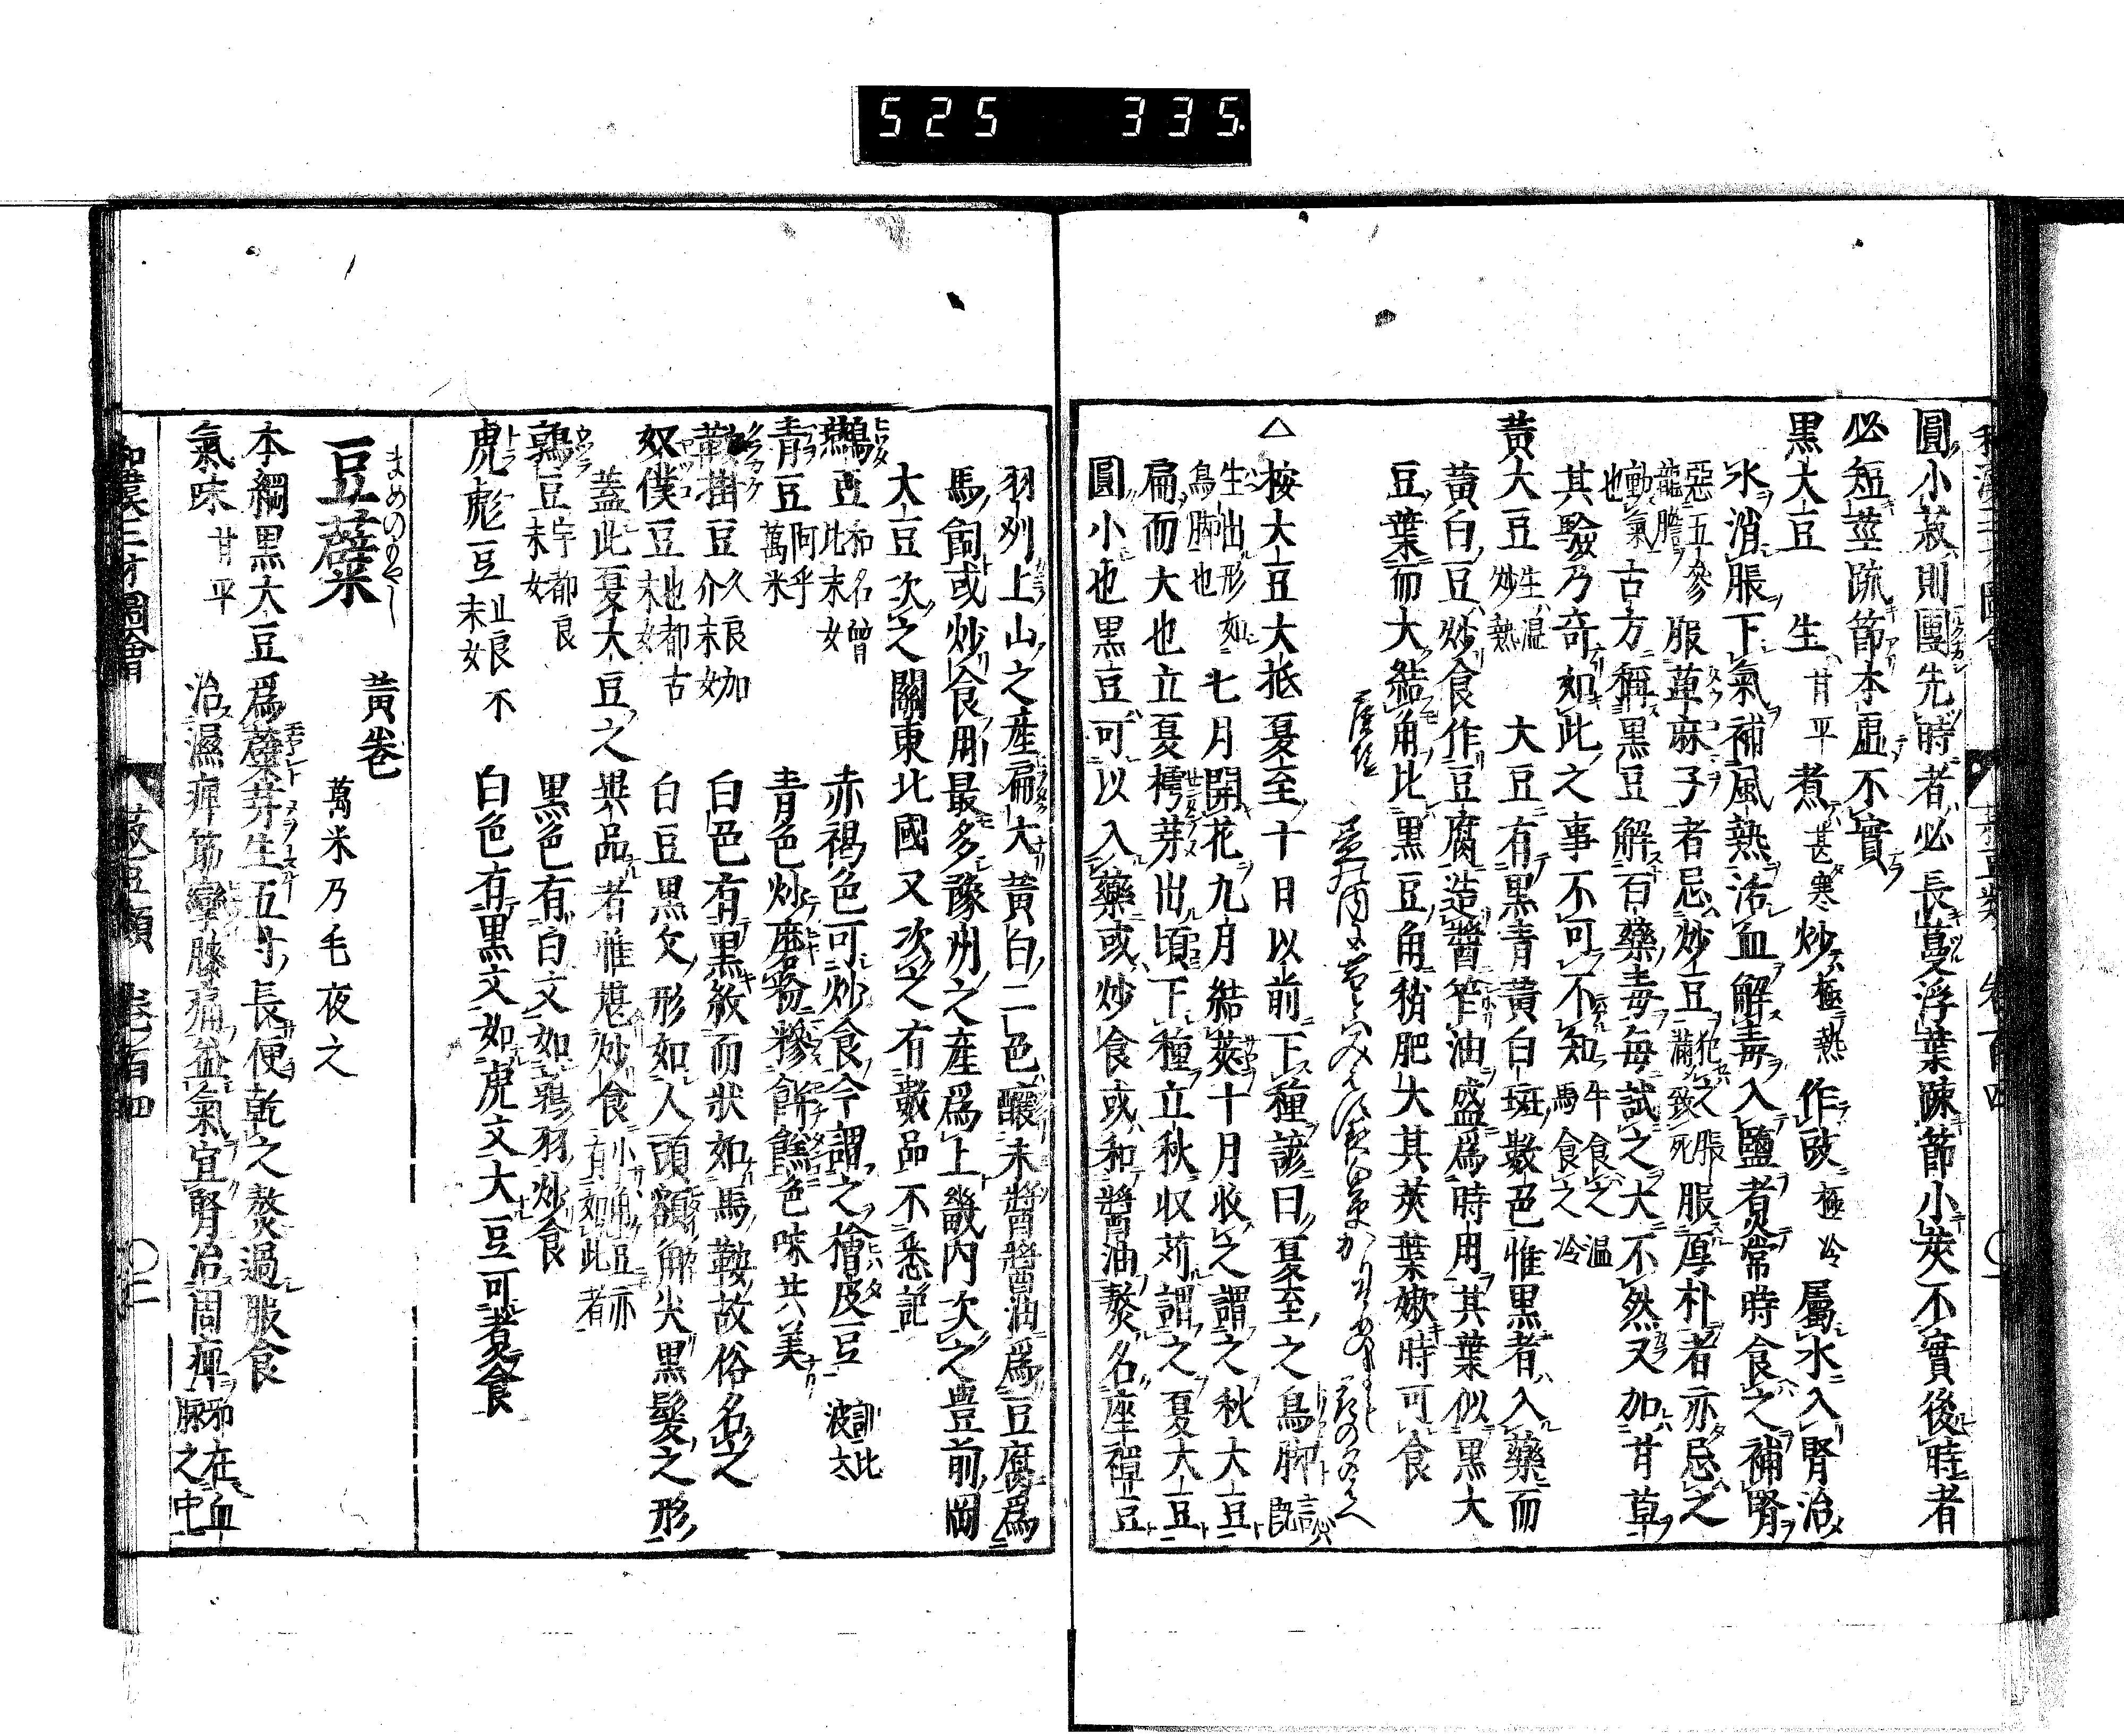 525 335
圓小菽則團先時者必長蔓浮葉疎節小莢不實後時者
必短莖疏節本虛不實
黒大豆 生甘平煮甚寒炒極熱作豉極冷屬水入腎治
水消脹下氣補風熱活血解毒入鹽煮常時食之補腎
惡五參龍膽 服萆麻子者忌炒豆犯之脹滿致死服厚朴者亦忌之
動氣也 古方稱黒豆解百藥毒毎試之大不然又加甘草
其驗乃奇如此之事不可不知牛食之温馬食之冷
黄大豆生温炒熱 大豆有黒青黄白斑數色惟黒者入藥而
黄白豆炒食作豆腐造醬笮油盛爲時用其葉似黒大
豆葉而大結角比黒豆角稍肥大其莢葉嫩時可食
△按大豆大抵夏至十日以前下種諺曰夏至之鳥脚言
生出形如鳥脚也 七月開花九月結莢十月收之謂之秋大豆
扁而大也立夏樗芽出頃下種立秋収苅謂之夏大豆
圓小也黒豆可以入藥或炒食或和醬油熬名座禪豆
羽刕上山之産扁大黄白二色釀未醬醬油爲豆腐爲
馬飼或炒食用最多豫州之産爲上畿内次之豊前岡
大豆次之關東北國又次之有數品不悉記
鷃豆和名曽比末女 赤褐色可炒食今謂之檜皮豆訓比波太
青豆阿乎萬米 青色炒磨粉糝餅餻色味共美
鞍掛豆久良加介末女 白色有黒紋而狀如馬鞍故俗名之
奴僕豆也都古末女 白豆黒文形如人頭額角尖黒髮之形
蓋此夏大豆之異品者惟堪炒食小角豆亦有如此者
鶉豆宇都良末女 黒色有白文如鶉羽炒食
虎彪豆止良不末女 白色有黒文如虎文大豆可煮食
豆蘗 まめのもやし 黄巻 萬米乃毛夜之
本綱黒大豆爲蘗芽生五寸長便乾之熬過服食
氣味甘平 治濕痺筋攣膝痛益氣宜腎治周痺邪在血脉之中
和漢三才圖會 菽豆類 巻百四 〇二